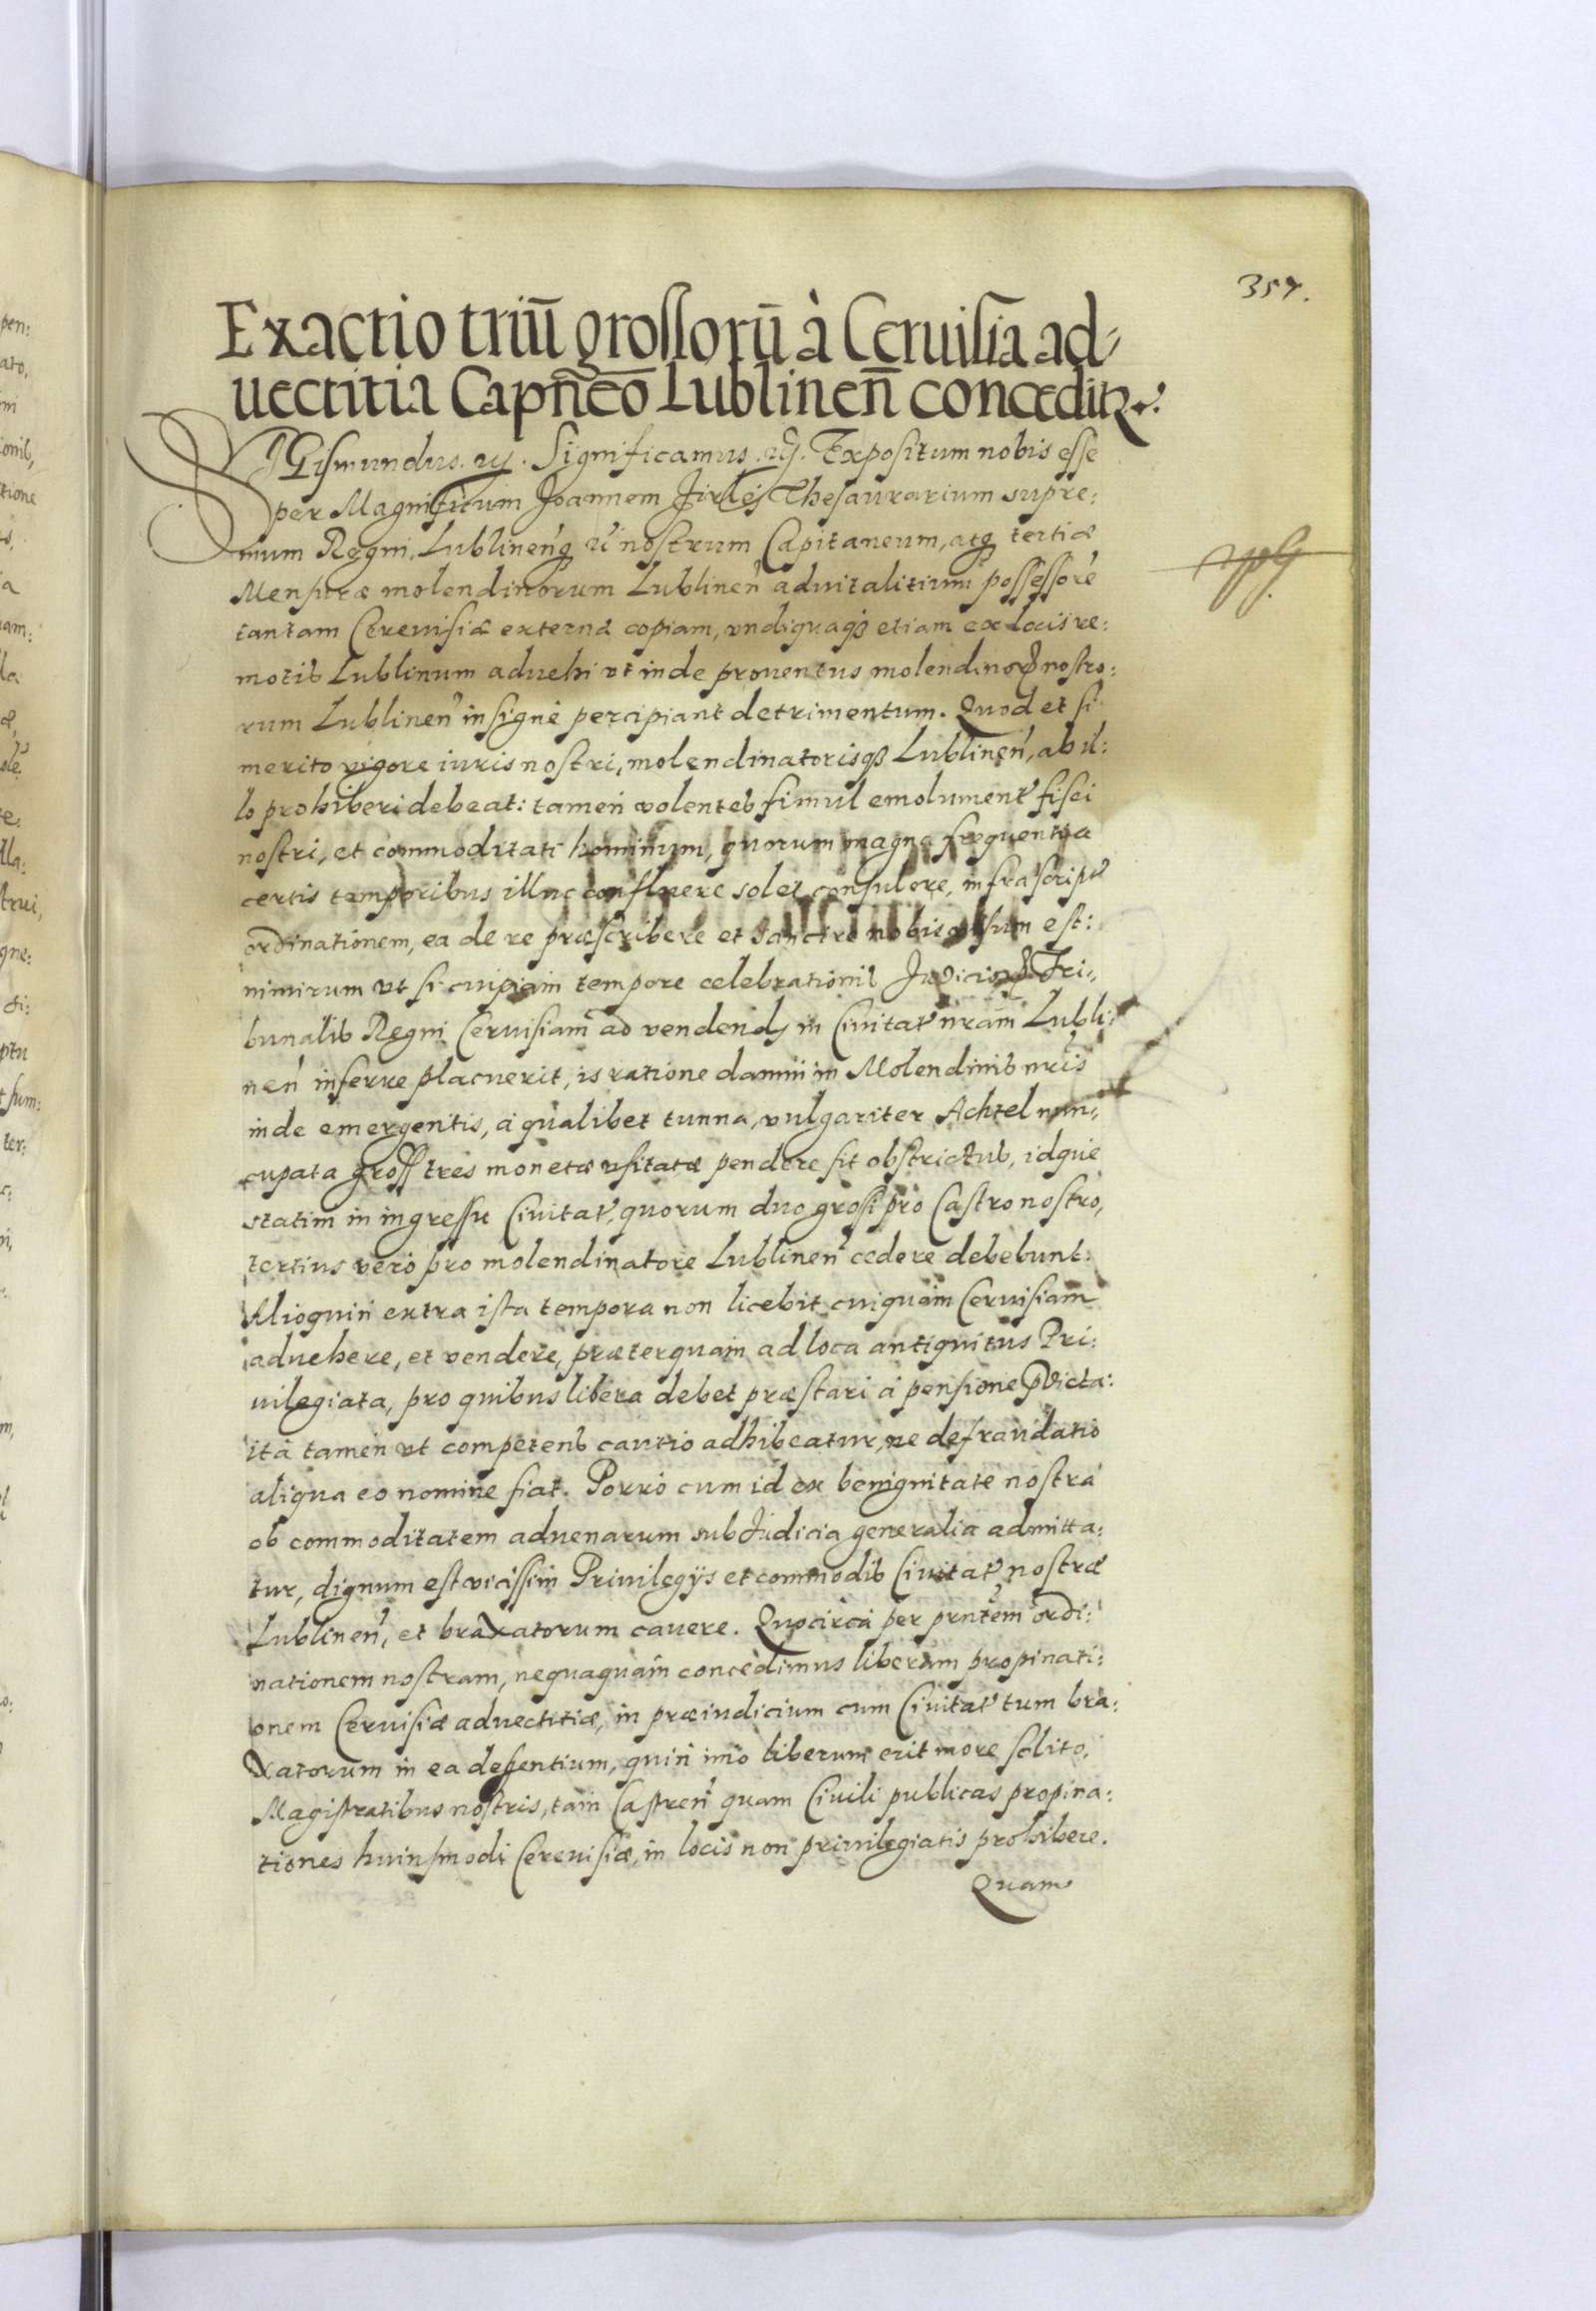 357.
Exactio triū grossorū à Ceruisia ad⸗
uectitia Capn̄eo Lublinen̄ conceditꝛ.
SIGismundus. &c. Significamus. &c. Expositum nobis esse
per Magnificum Joannem Firlej Thesaurarium supre:
mum Regni, Lublinenq́ nostrum Capitaneum, atq́ tertiæ
Mensuræ molendinorum Lublinen̾ aduitalitium possessore
tantam Cereuisiæ externæ copiam, vndiquaq́ etiam ex locis re:
motis Lublinum aduehi vt inde prouentus molendinoꝝ nostro:
rum Lublinen̾ insigne percipiant detrimentum. Quod et si
merito vigore iuris nostri, molendinatorisq́ Lublinen̾, ab il:
lo prohiberi debeat: tamen volentes simul emolument̾ fisci
nostri, et commoditati hominum, quorum magna frequentia
certis temporibus illuc confluere solet consulere, infrascript̾
ordinationem, ea de re præscribere et sancire nobis visum est:
nimirum vt si cuipiam tempore celebrationis Judicioꝝ Tri⸗
bunalis Regni Ceruisiam ad vendendꝭ in Ciuitat̾ nram Lubli⸗
nen̾ inferre placuerit, is ratione damni in Molendinis nris
inde emergentis, à qualibet tunna, vulgariter Achtel nun⸗
cupata gross tres monetæ vsitatæ pendere sit obstrictus, idque
statim in ingressu Ciuitat̾, quorum duo grossi pro Castro nostro,
tertius vero pro molendinatore Lublinen̾ cedere debebunt.
Alioquin extra ista tempora non licebit cuiquam Ceruisiam
aduehere, et vendere, præterquam ad loca antiquitus Pri:
uilegiata, pro quibus libera debet præstari à pensione p̄dicta:
ita tamen vt competens cautio adhibeatur, ne defraudatio
aliqua eo nomine fiat. Porro cum id ex benignitate nostra
ob commoditatem aduenarum sub Judicia generalia admitta:
tur, dignum est vicissim Priuilegijs et commodis Ciuitat̾ nostræ
Lublinen̾, et braxatorum cauere. Quocirca per prntem ordi:
nationem nostram, nequaquam concedimus liberam propinati:
onem Ceruisiæ aduectitiæ, in præiudicium cum Ciuitat̾ tum bra:
xatorum in ea degentium, quin imo liberum erit more solito,
Magistratibus nostris, tam Castren̾ quam Ciuili publicas propina:
tiones huiusmodi Cereuisiæ, in locis non priuilegiatis prohibere.
Quam